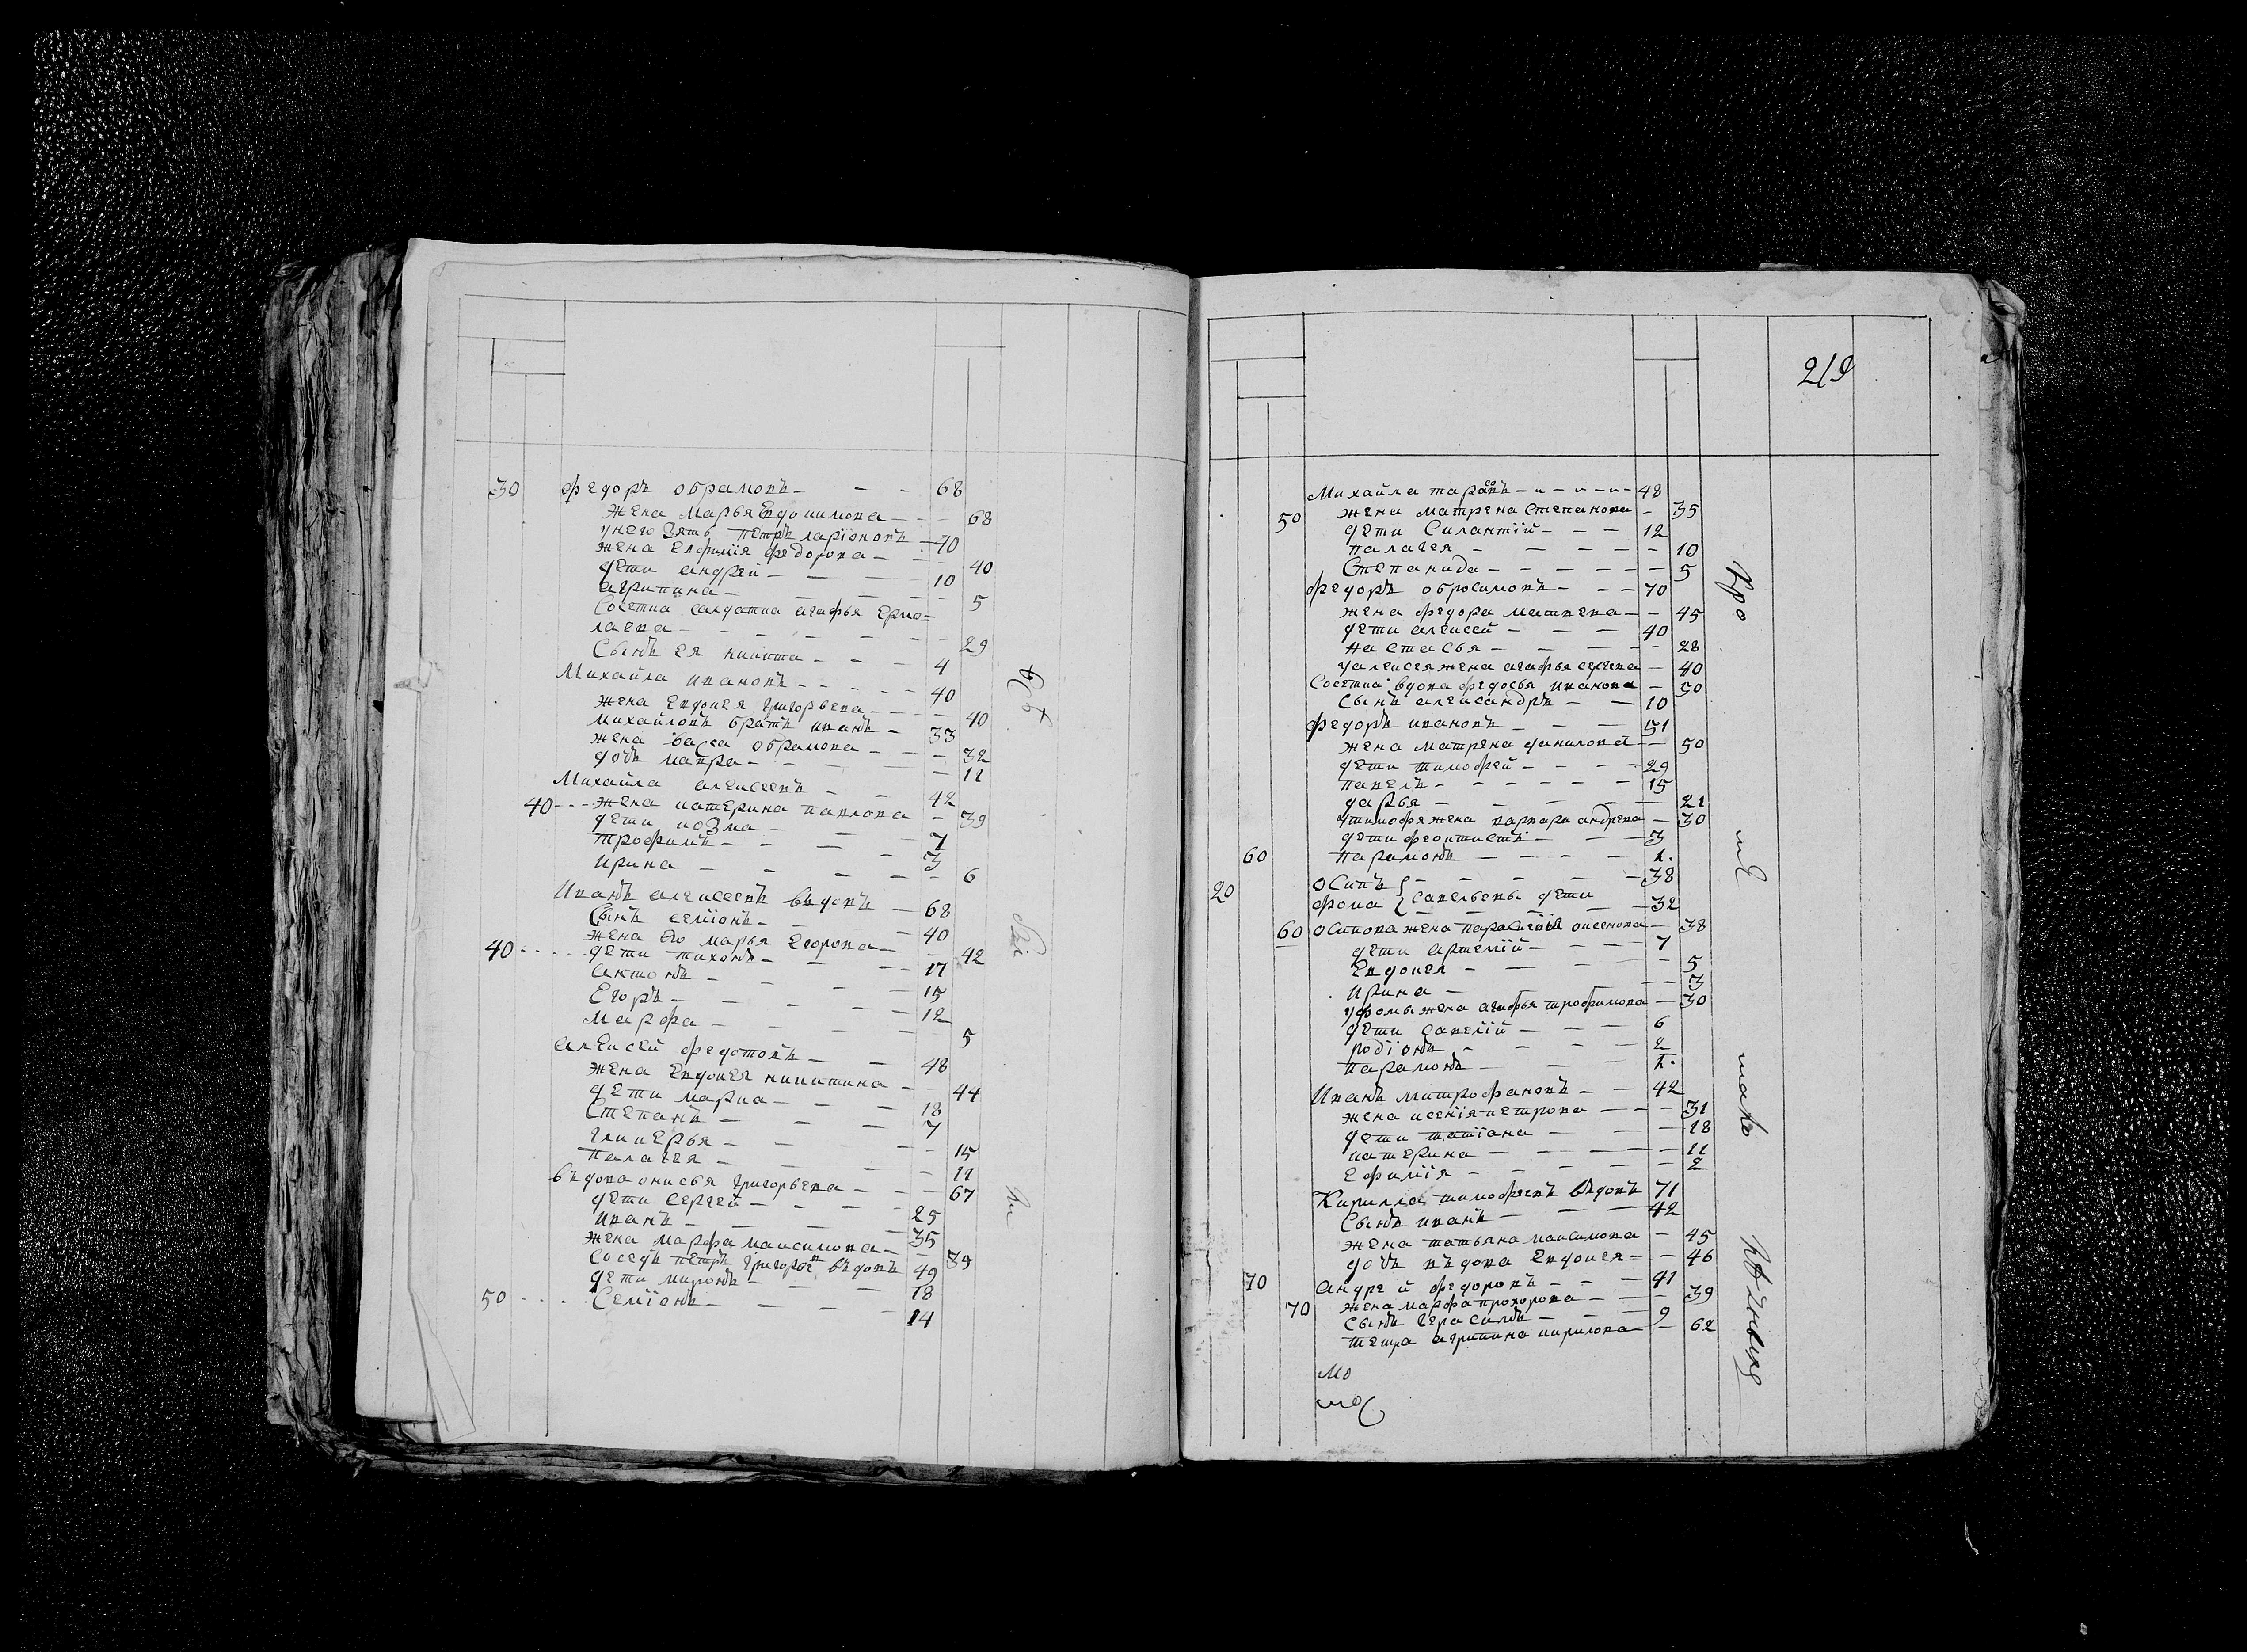 30 Федоръ обрамовъ - - - 68
жена Марья Евдокимова - - 68
унего зять петръ ларiоновъ - 70
жена Евфимiя федорова - - 40
дети андрей - - - 10
агрипина - - - 5
Соседка салдатка агафья Ермо=
лаева - - - - 29
Сынъ ея никита - - - 4
Михайла ивановъ - - - 40
жена Евдокея Григорьева - - 40
михайловъ братъ иванъ - 33
жена васса обрамова - - 32
дочь мавра - - - 11
Михайла алексеевъ - - 42
40 - - жена катерина павлова - 39
дети козма - - - 7
трофимъ - - - 3
ирина - - - - 6
Иванъ алексеевъ въдовъ - 68
Сынъ семiонъ - - 40
жена Его марья Егорова - - 42
40 - - - дети тихонъ - - - 17
антонъ - - - 15
Егоръ - - - 12
марфа - - - - 5
алексей федотовъ - - 48
жена Евдокея никитина - - 44
дети марка - - - 18
Степанъ - - - 7
гликерья - - - 15
палагея - - - - 11
въдова анисья Григорьева - - 67
дети Сергей - - - 25
иванъ - - - 35
жена марфа максимова - - 39
соседъ петръ Григорьевъ въдовъ 49
дети миронъ - - - 18
50 - - - Семiонъ - - - 14
219
Михайла тарасовъ - - - - 48
50 жена матрена степанова - 35
дети Силантiй - - - 12
палагея - - - - 10
Степанида - - - - 5
федоръ обросимовъ - - - 70
жена федора матвеева - - 45
дети алексей - - - 40
настасья - - - - 28
уалексея жена агафья сергеева - 40
Соседка вдова федосья иванова - 50
сынъ александръ - - 10
федоръ ивановъ - - - 51
жена матрена данилова - - 50
дети тимофей - - - 29
павелъ - - - - 15
дарья - - - - 21
утимофея жена варвара андреева - 30
дети феоктистъ - - - 3
60 парамонъ - - - - 1.
20 осипъ - - - - 38
фома { Савельевы дети - 32
60 осипова жена парасковiя аксенова - 38
дети артемiй - - - 7
Евдокея - - - - 5
ирина - - - - 3
уфомы жена агафья трофимова - 30
дети савелiй - - - 6
родiонъ - - - 2
парамонъ - - - 1.
Иванъ митрофановъ - - 42
жена ксенiя петрова - - - 31
дети татiана - - - 18
катерина - - - - 11
Ефимiя - - - - 2
Кирилла тимофеевъ въдовъ 71
Сынъ иванъ - - - 42
жена татьяна максимова - 45
дочь въдова Евдокея - - 46
70 андрей федоровъ - - - 41
70 жена марфа прохорова - - - 39
сынъ герасимъ - - - 9
теща агрипина кирилова - - 62
Мо